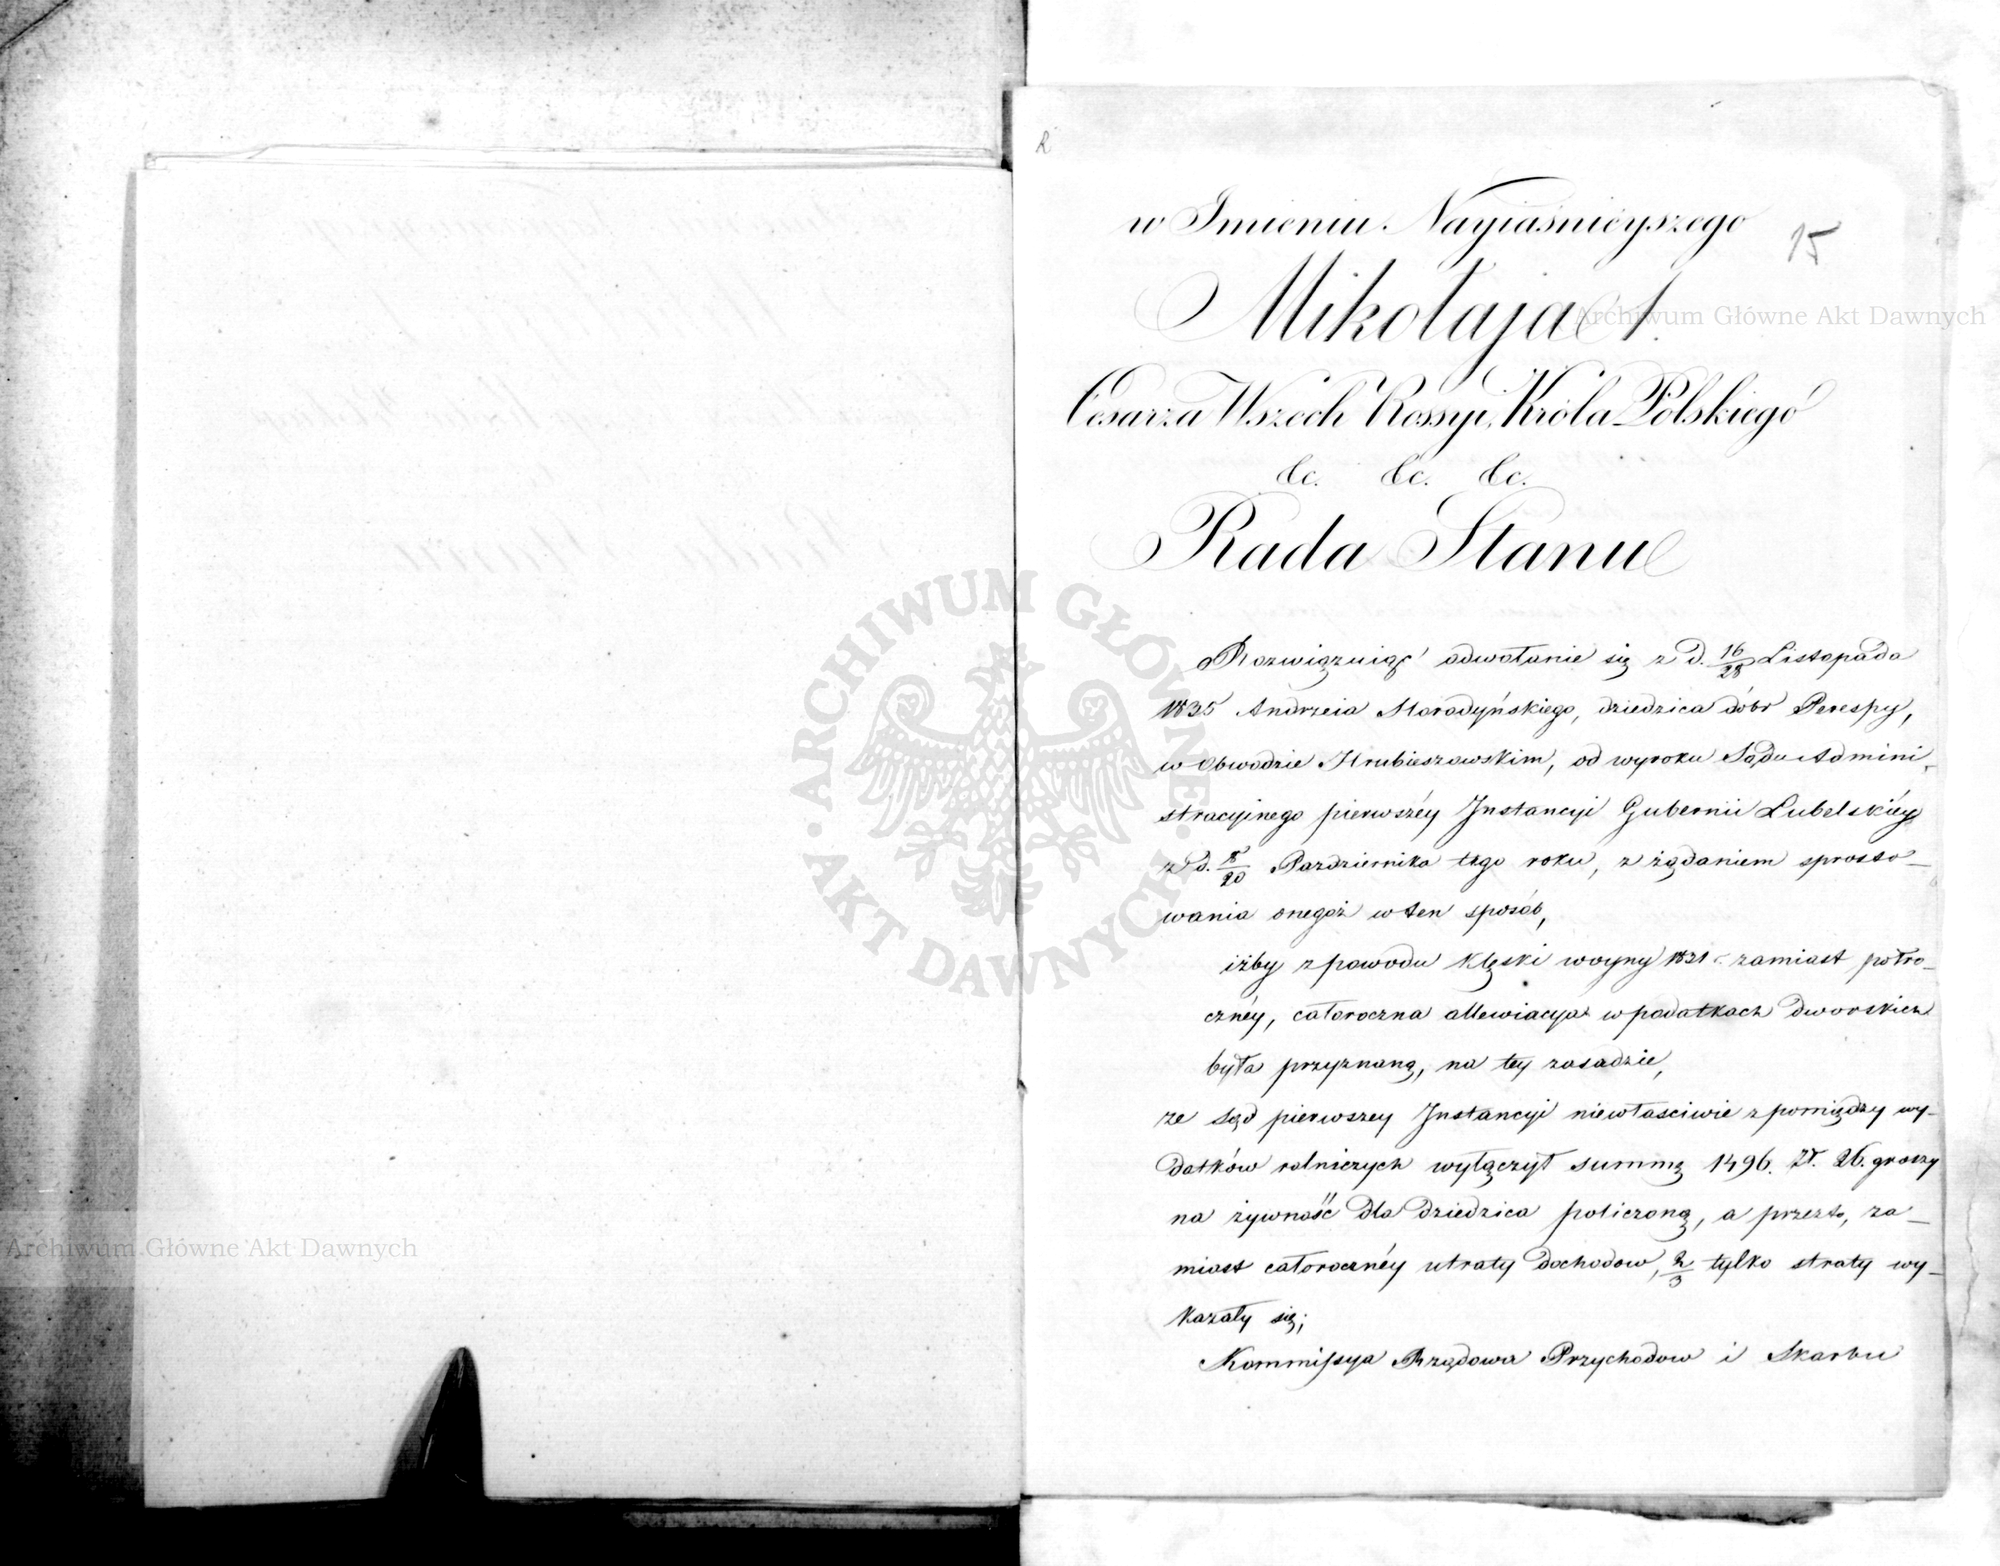 15
w Imieniu Nayiaśnieyszego
Mikołaja I.
Cesarza Wszech Rossyi, Króla Polskiego
&c. &c. &c.
Rada Stanu
Rozwiązuiąc odwołanie się z d. 16/28 Listopada
1835 Andrzeia Starodyńskiego, dziedzica dóbr Perespy,
w Obwodzie Hrubieszowskim, od wyroku Sądu Admini-
stracyinego pierwszéy Instancyi Gubernii Lubelskiéy
z d. 8/20 Pazdziernika tego roku, z żądaniem sprosto-
wania onegoż w ten sposób,
iżby z powodu klęski woyny 1831 r. zamiast połro-
cznéy, całoroczna allewiacya w podatkach dworskich
była przyznaną, na tey zasadzie,
ze Sąd pierwszey Instancyi niewłasciwie z pomiędzy wy-
datków rolniczych wyłączył summę 1496. Zł. 26. groszy
na żywność dla dziedzica policzoną, a przezto, za-
miast całorocznéy utraty dochodow, 2/3 tylko straty wy-
kazały się;
Kommissya Rządowa Przychodow i Skarbu
Archiwum Główne Akt Dawnych
Archiwum Główne Akt Dawnych
ARCHIWUM GŁÓWNE AKT DAWNYCH